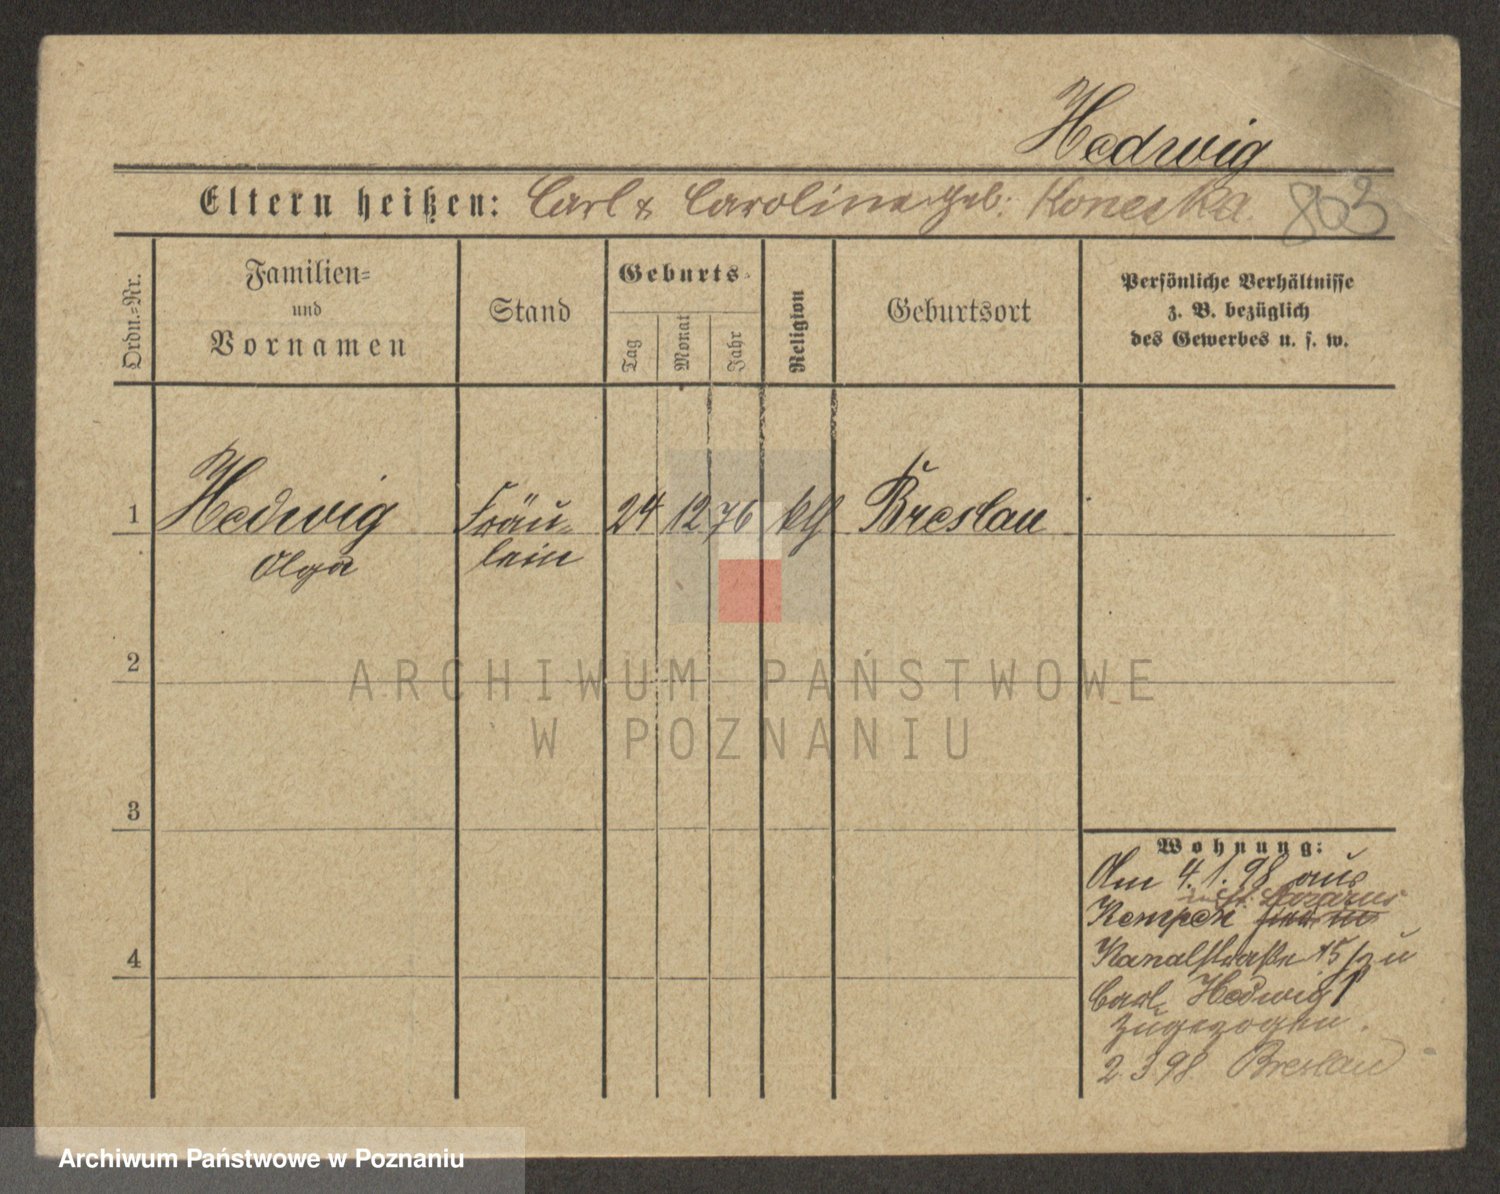 Hedwig
Eltern heißen: Carl & Caroline geb: Koneska.
803
Ordn.=Nr.
Familien=
und
Vornamen
Stand
Geburts=
Tag
Monat
Jahr
Religion
Geburtsort
Persönliche Verhältnisse
z. B. bezüglich
des Gewerbes u. s. w.
1 Hedwig Fräu- 24 12 76 Breslau
Olga lein
2
ARCHIWUM PAŃSTWOWE
W POZNANIU
3
4
Wohnung:
Am 4.1.98 aus
St. Lazarus
Kempen
Kanalstraße 15 zu
Carl Hedwig
zugezogen.
2.3.98. Breslau
Archiwum Państwowe w Poznaniu